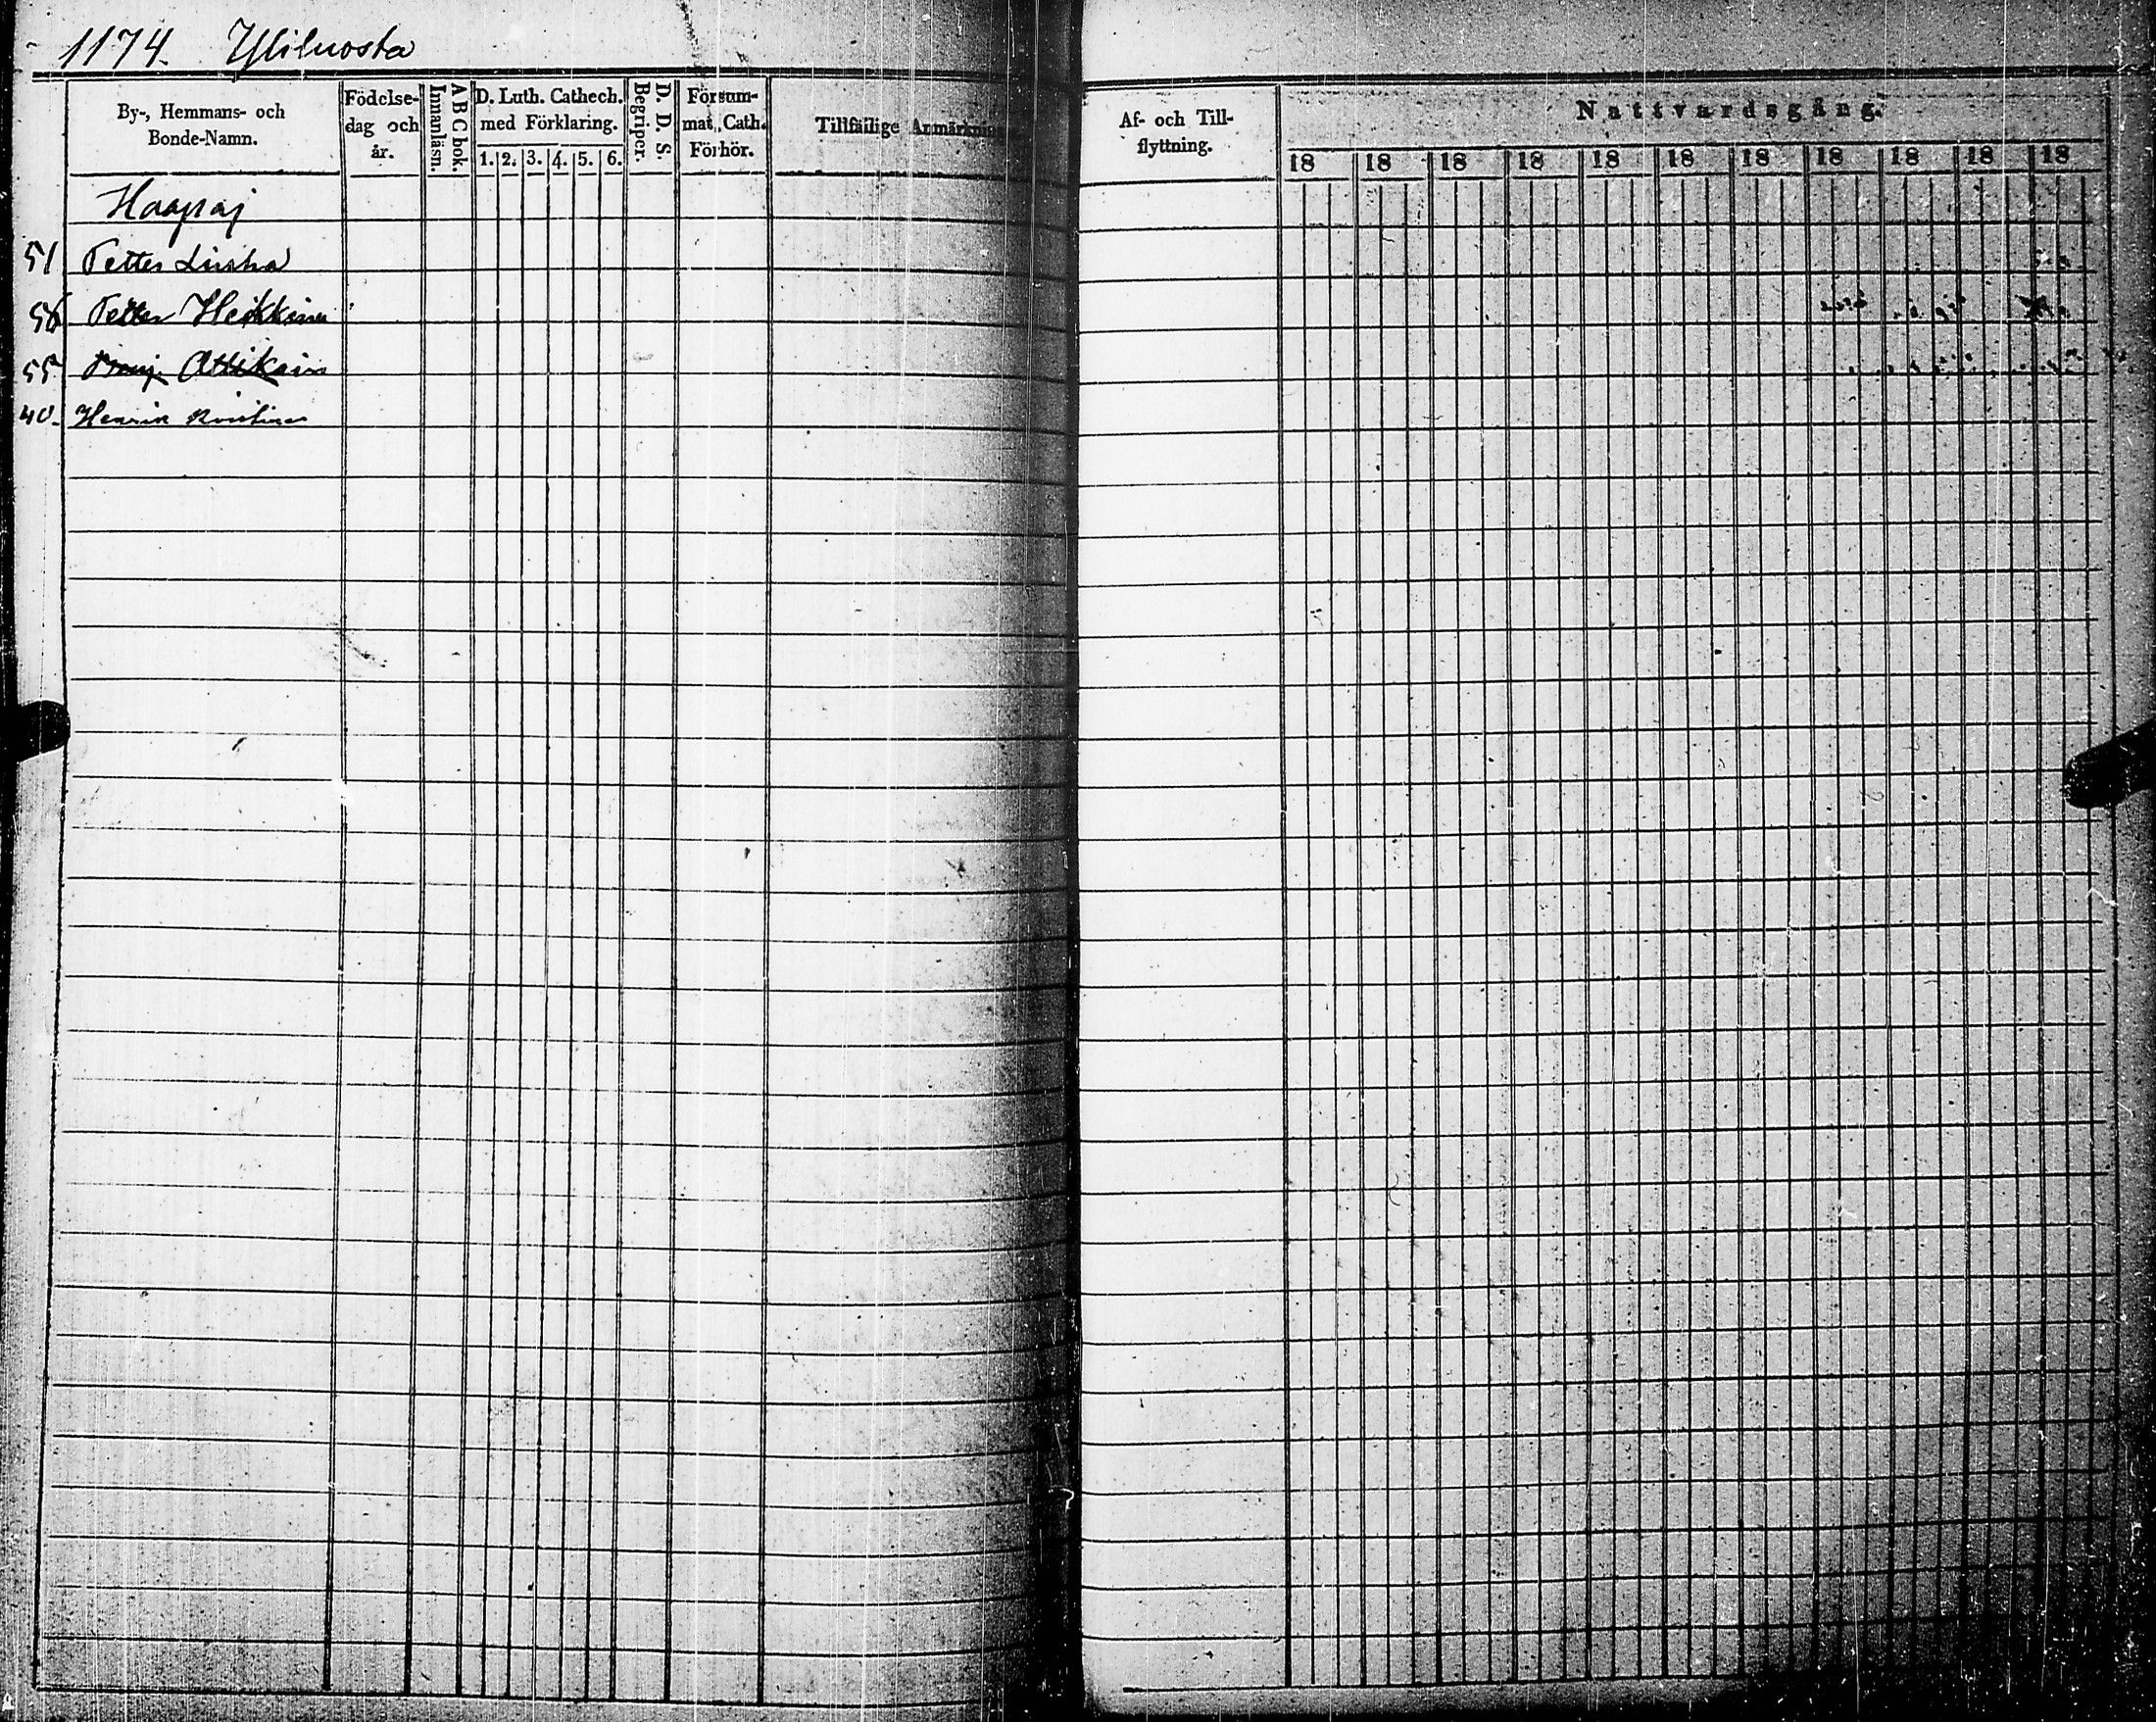 1174. Yliluosta
By-, Hemmans- och Bonde-Namn.
Födelse-dag och år.
A B C bok. Innanläsn.
D. Luth. Cathech. med Förklaring.
1. 2. 3. 4. 5. 6.
D. D. S. Begriper.
Försum-mat Cath. Förhör.
Tillfällige Anmärkning
Af- och Till-flyttning.
Nattvardsgång.
18 18 18 18 18 18 18 18 18 18 18
Haapaj
51 Petter
Petter Heikkinen
55
40. Henrik